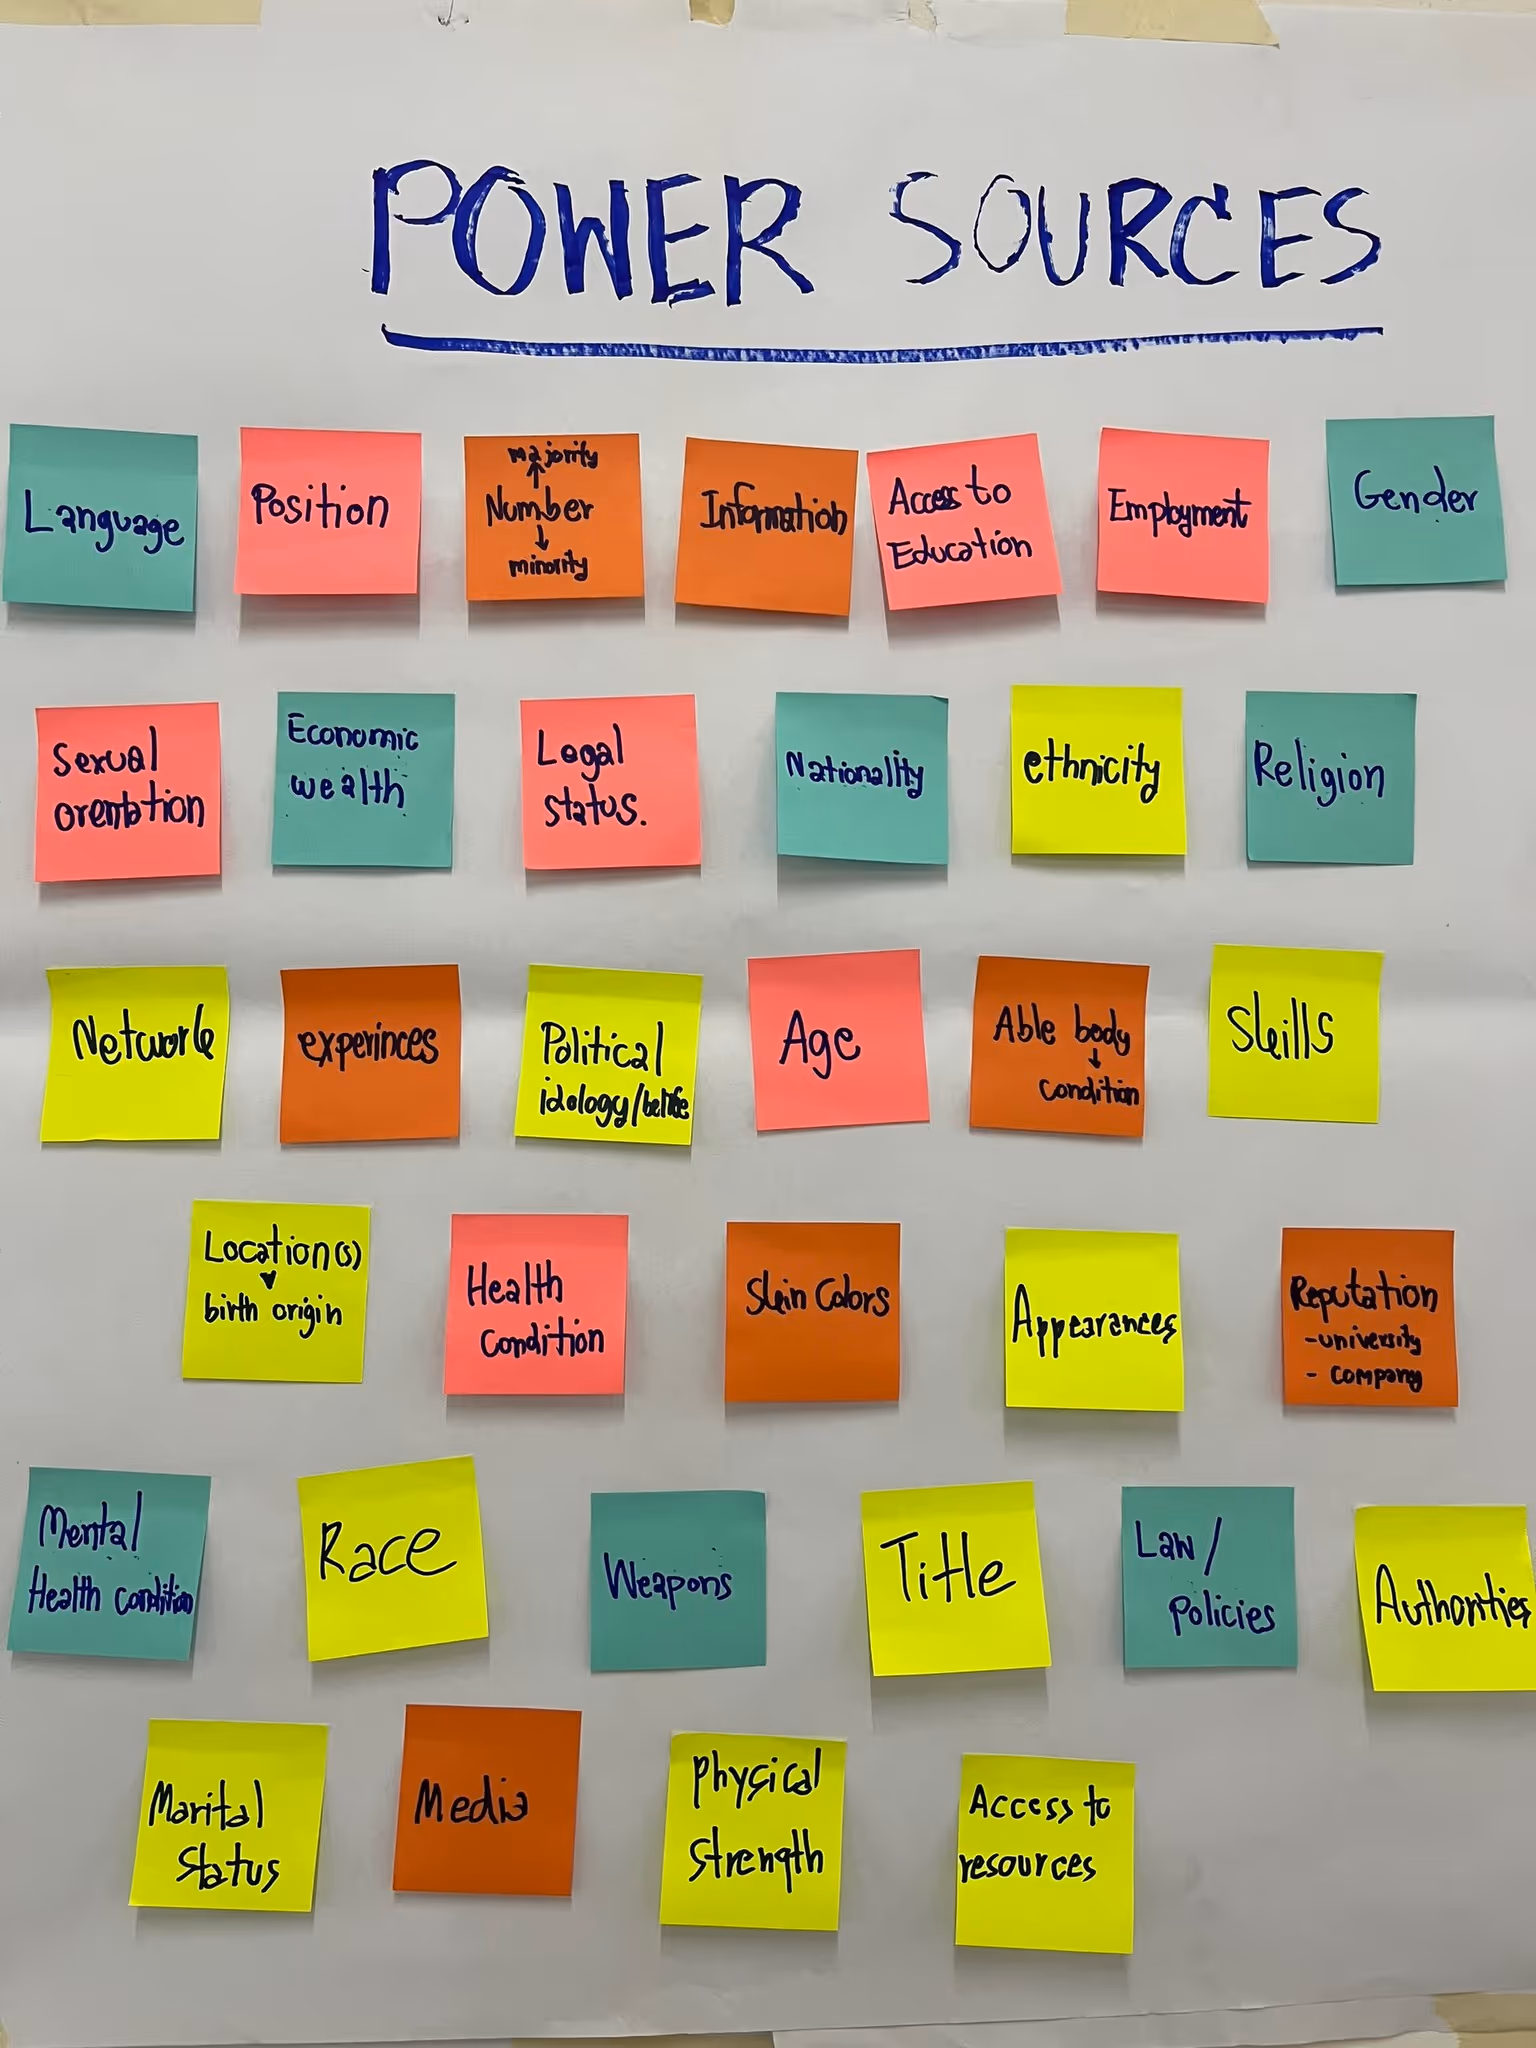 POWER SOURCES
Language
Position
majority
Number
minority
Information
Access to
Education
Employment
Gender
Sexual
orentation
Economic
wealth
Legal
status.
Nationality
ethnicity
Religion
Network
experinces
Political
idology/belife
Age
Able body
condition
Skills
Location(s)
birth origin
Health
Condition
Skin Colors
Appearances
Reputation
-university
- company
Mental
Health condition
Race
Weapons
Title
Law/
policies
Authorities
Marital
Status
Media
Physical
strength
Access to
resources